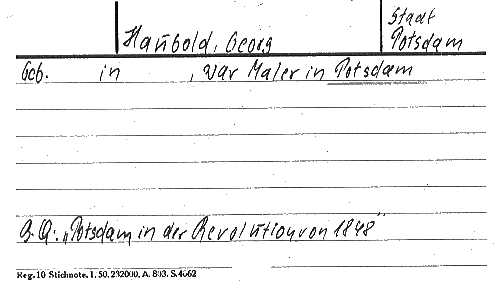 Stadt
Haubold, Georg Potsdam
Geb. in , war Maler in Potsdam
B. A.: „Potsdam in der Revolution von 1848"
Reg. 10 Stichnote. 1. 50. 232000. A. 803. S. 4662